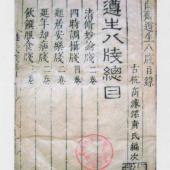 遵生八牋目錄
古杭高濂深甫氏編次
遵生八牋總目
清修妙論牋 二卷
四時調攝牋 四卷
起居安樂牋 二卷
延年却病牋 二卷
飲饌服食牋 三卷